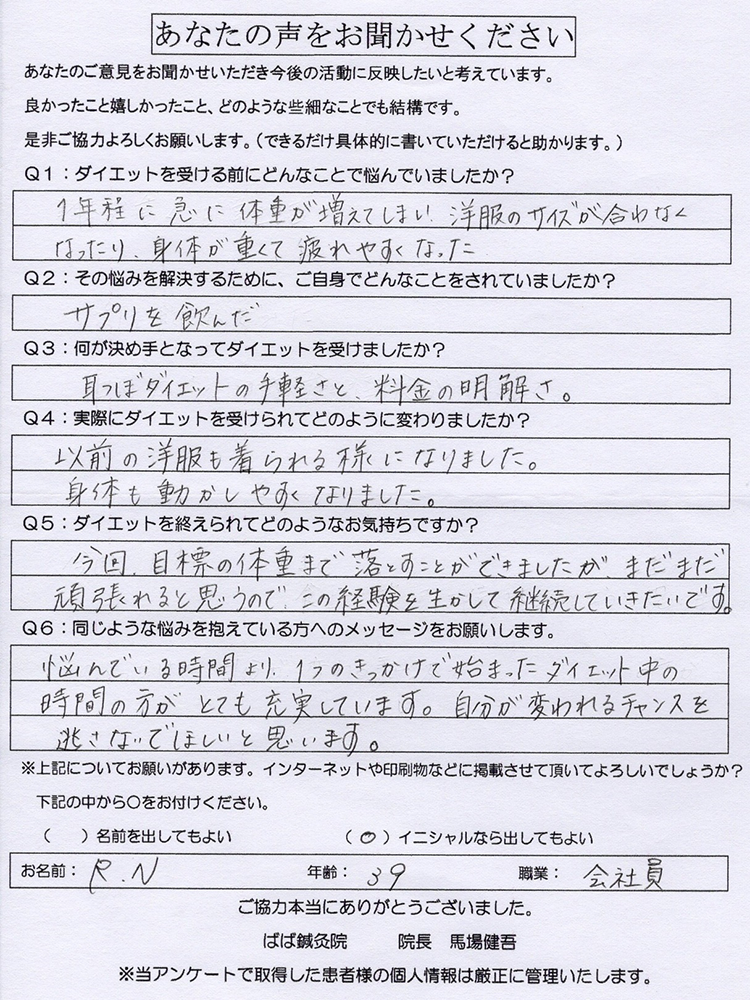 あなたの声をお聞かせください
あなたのご意見をお聞かせいただき今後の活動に反映したいと考えています。
良かったこと嬉しかったこと、どのような些細なことでも結構です。
是非ご協力よろしくお願いします。（できるだけ具体的に書いていただけると助かります。）
Q1：ダイエットを受ける前にどんなことで悩んでいましたか？
1年程に急に体重が増えてしまい、洋服のサイズが合わなく
なったり、身体が重くて疲れやすくなった
Q2：その悩みを解決するために、ご自身でどんなことをされていましたか？
サプリを飲んだ
Q3：何が決め手となってダイエットを受けましたか？
耳つぼダイエットの手軽さと、料金の明解さ。
Q4：実際にダイエットを受けられてどのように変わりましたか？
以前の洋服も着られる様になりました。
身体も動かしやすくなりました。
Q5：ダイエットを終えられてどのようなお気持ちですか？
今回、目標の体重まで落とすことができましたが、まだまだ
頑張れると思うので、この経験を生かして継続していきたいです。
Q6：同じような悩みを抱えている方へのメッセージをお願いします。
悩んでいる時間より、1つのきっかけで始まったダイエット中の
時間の方がとても充実しています。自分が変われるチャンスを
逃さないでほしいと思います。
※上記についてお願いがあります。インターネットや印刷物などに掲載させて頂いてよろしいでしょうか？
下記の中から〇をお付けください。
（　　）名前を出してもよい　　（〇）イニシャルなら出してもよい
お名前：R.N　　年齢：39　　職業：会社員
ご協力本当にありがとうございました。
ばば鍼灸院　　院長　馬場健吾
※当アンケートで取得した患者様の個人情報は厳正に管理いたします。